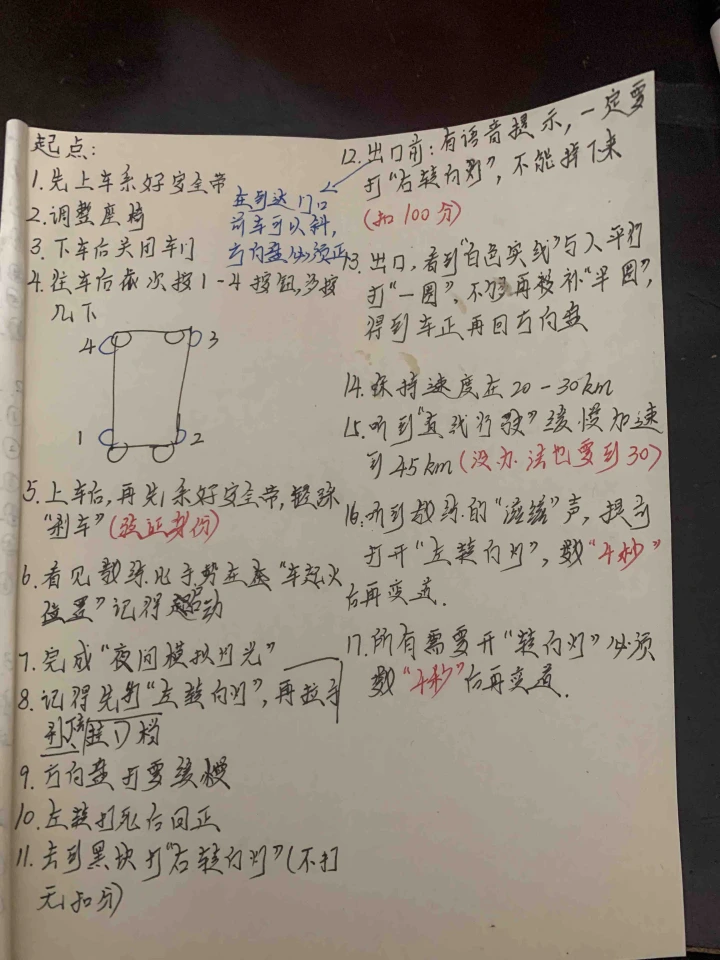 起点:
1.先上车系好安全带
2.调整座椅
3.下车后关闭车门
4.往车后依次按1-4按钮,多按
几下
4
3
1
2
5.上车后,再先系好安全带,轻踩
"刹车"(验证身份)
6.看见教练比手势在座"车熄火
位置"记得启动
7.完成"夜间模拟灯光"
8.记得先打"左转向灯",再拉手
刹,挂1档
9.方向盘打要缓慢
10.左转打死后回正
11.去到黑块打"右转向灯"(不打
无扣分)
在到达门口
前车可以斜,
方向盘必须正
12.出口前:有语音提示,一定要
打"右转向灯",不能掉下来
(扣100分)
13.出口,看到"白色实线"与人平行
打"一圆",不够再被补"半圆",
得到车正再回方向盘
14.保持速度在20-30km
15.听到"直线行驶"缓慢加速
到45km(没办法也要到30)
16.听到教练的"滋滋"声,提前
打开"左转向灯",数"4秒"
后再变道.
17.所有需要开"转向灯"必须
数"4秒"后再变道.